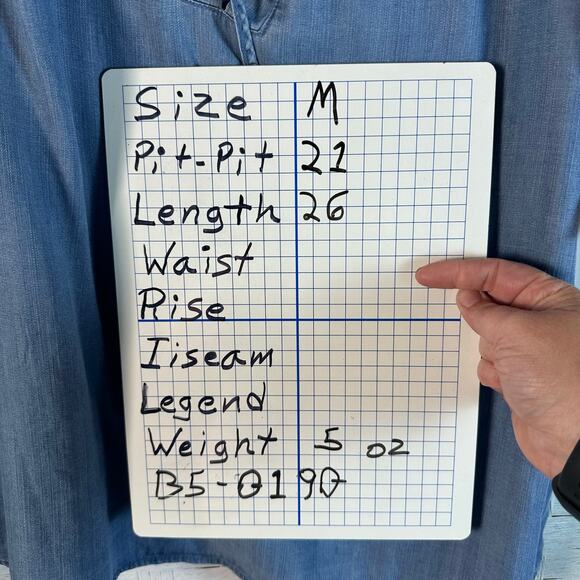 Size M
Pit-Pit 21
Length 26
Waist
Rise
Iiseam
Legend
Weight 5 oz
B5-0190